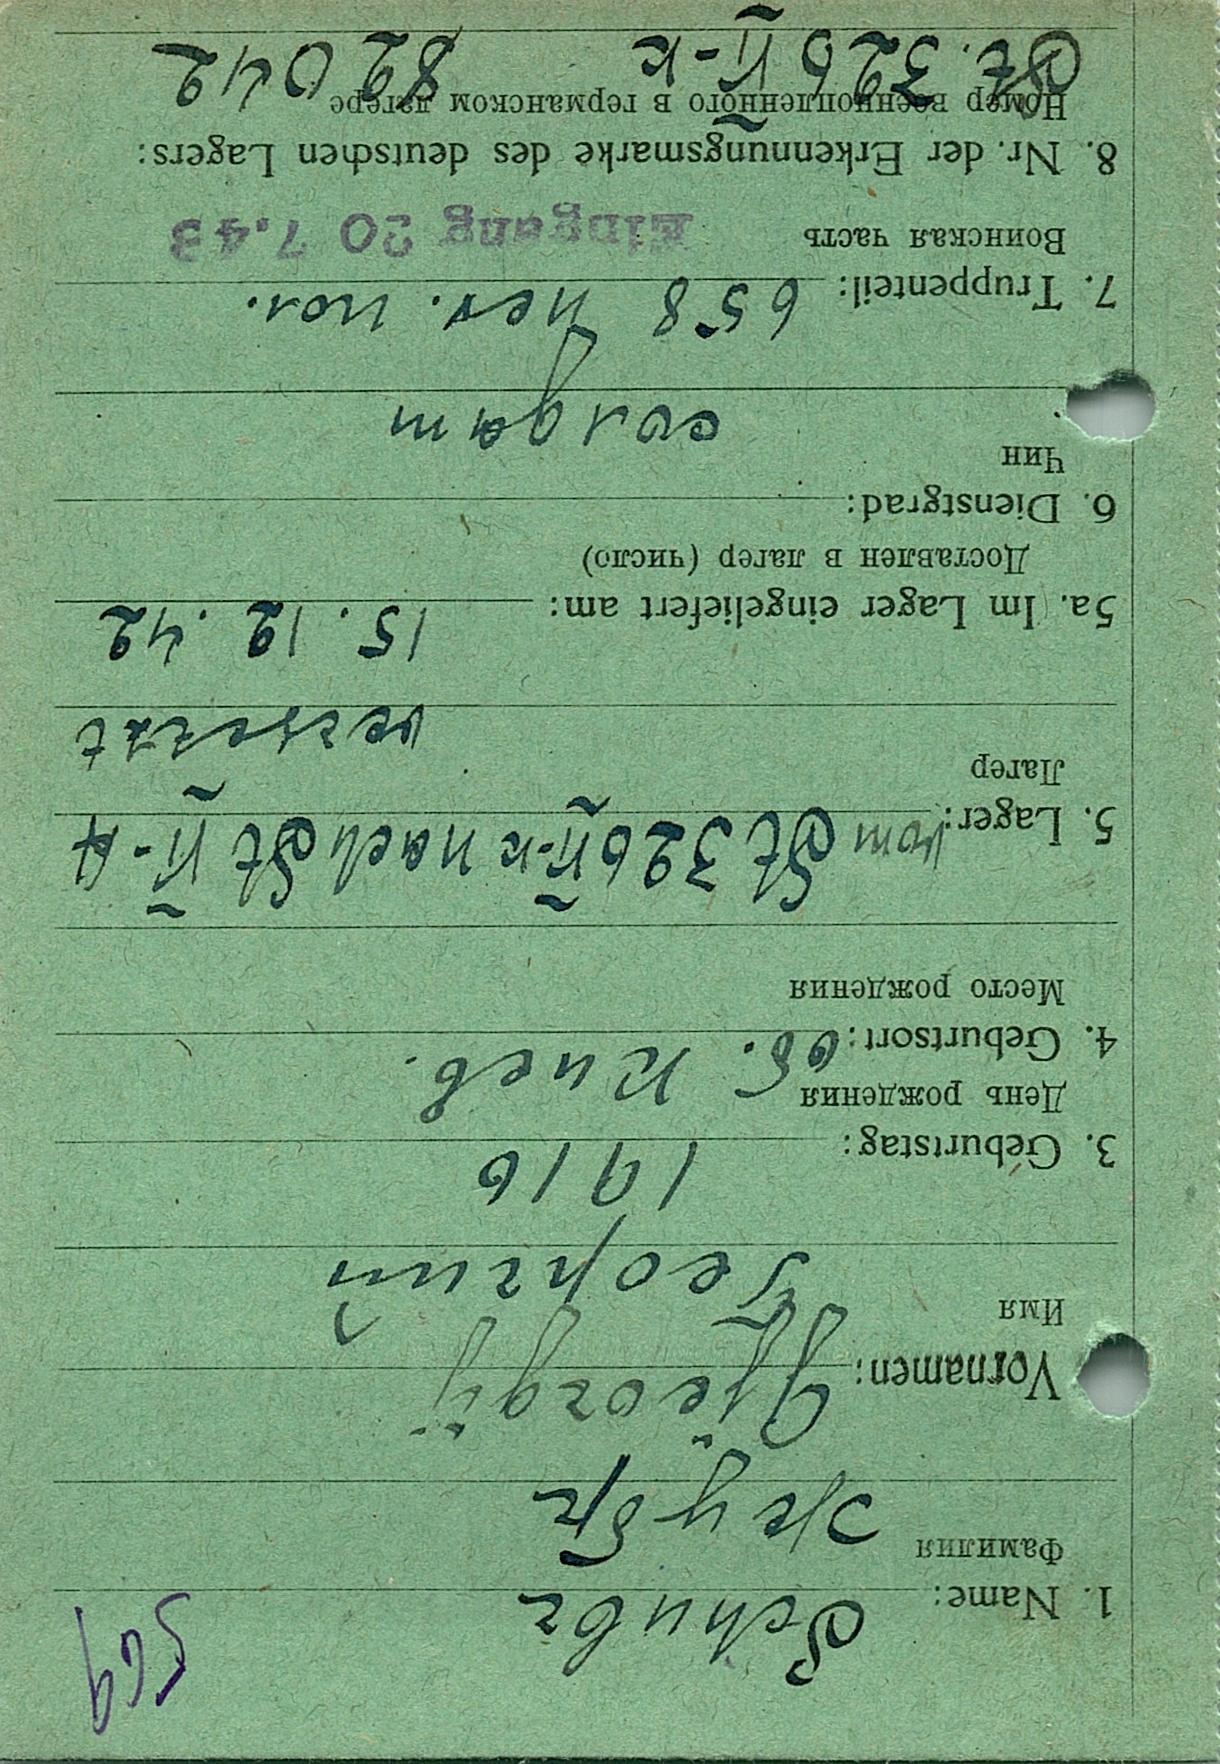 569
1. Name: Schubr
Фамилия Жубр
Vornamen: Gjeorgij
Имя Георгий
3. Geburtstag: 1916
День рождения
4. Geburtsort: об. Киев.
Место рождения
5. Lager: vom St 326 VI-K nach St VI-A
Лагер
versetzt
5a. Im Lager eingeliefert am: 15.12.42
Доставлен в лагер (число)
6. Dienstgrad:
Чин солдат
7. Truppenteil: 658 пех. пол.
Воинская часть Eingang 20 7.43
8. Nr. der Erkennungsmarke des deutschen Lagers:
Номер военнопленного в германском лагере
St. 326 VI-K 82042